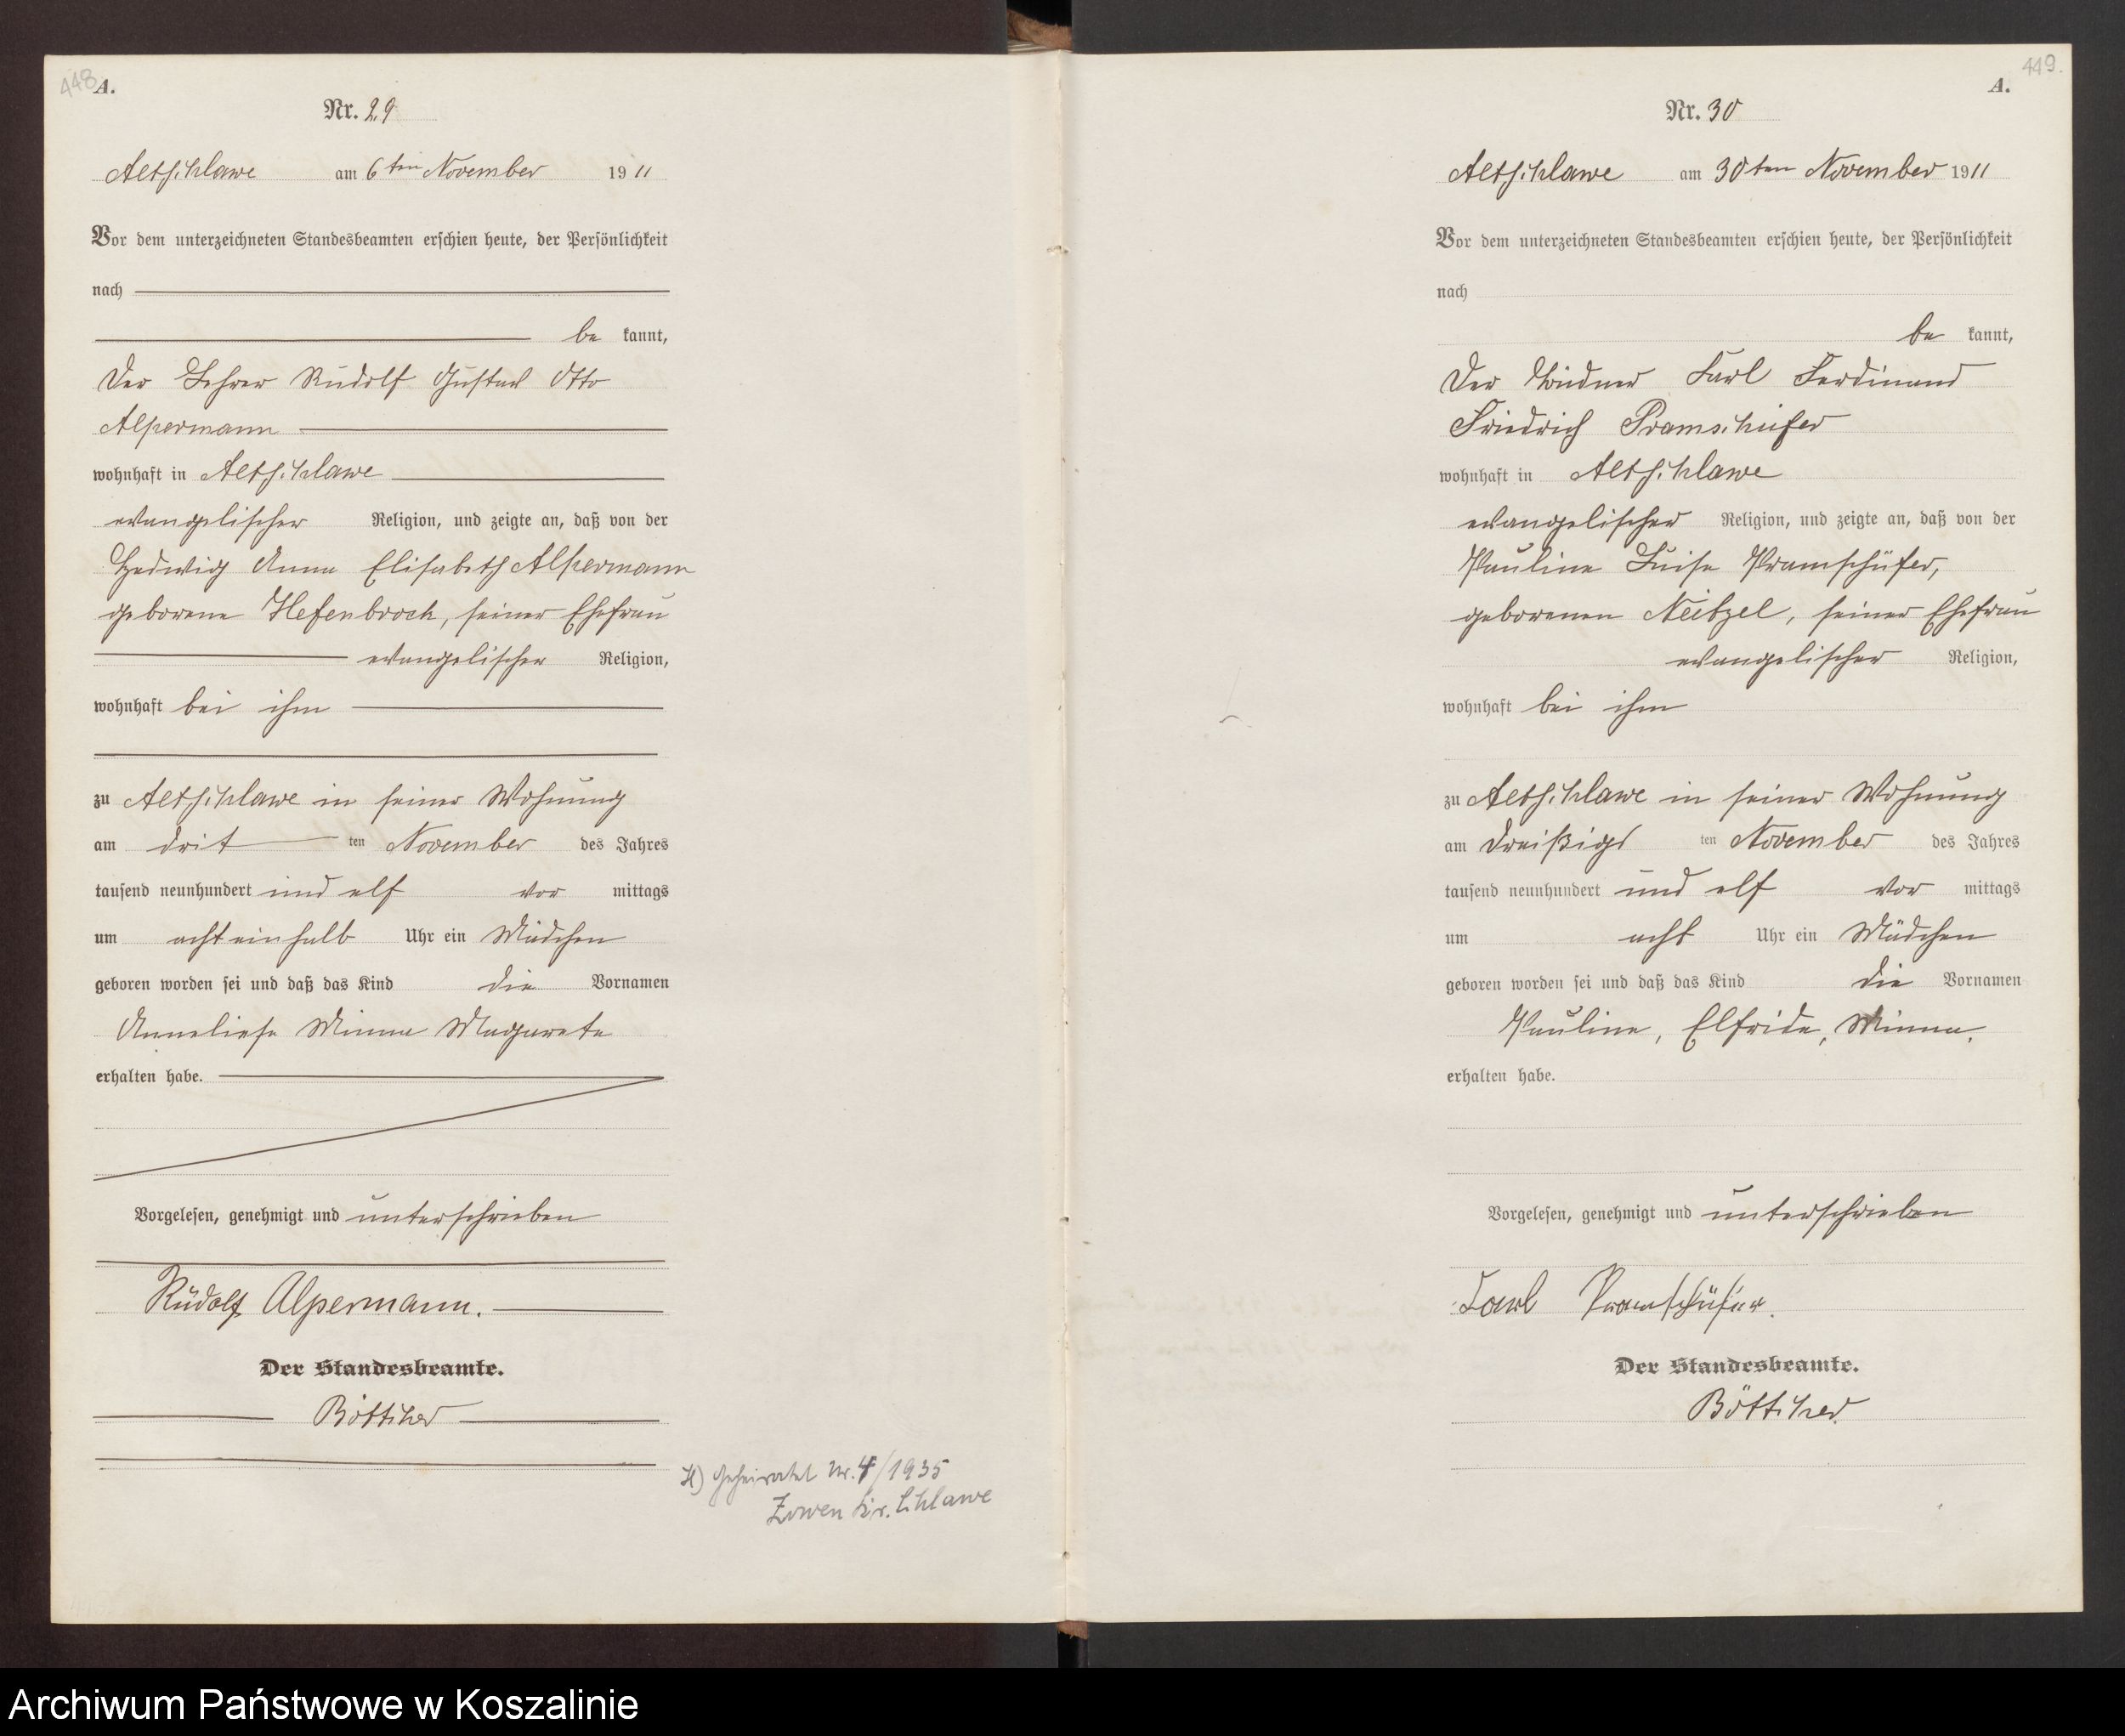 448
A.
Nr. 29
Altschlawe am 6ten November 1911
Vor dem unterzeichneten Standesbeamten erschien heute, der Persönlichkeit
nach
be kannt,
Der Lehrer Rudolf Gustav Otto
Alpermann
wohnhaft in Altschlawe
evangelischer Religion, und zeigte an, daß von der
Hedwig Anna Elisabeth Alpermann
geborene Hefenbrock, seiner Ehefrau
evangelischer Religion,
wohnhaft bei ihm
zu Altschlawe in seiner Wohnung
am drit ten November des Jahres
tausend neunhundert und elf vor mittags
um achteinhalb Uhr ein Mädchen
geboren worden sei und daß das Kind die Vornamen
Anneliese Minna Magarete
erhalten habe.
Vorgelesen, genehmigt und unterschrieben
Rudolf Alpermann.
Der Standesbeamte.
Böttcher
H) Geheiratet Nr. 4/1935
Zowen Kr. Schlawe
449.
A.
Nr. 30
Altschlawe am 30ten November 1911
Vor dem unterzeichneten Standesbeamten erschien heute, der Persönlichkeit
nach
be kannt,
Der Büdner Karl Ferdinand
Friedrich Pramschüfer
wohnhaft in Altschlawe
evangelischer Religion, und zeigte an, daß von der
Pauline Luise Pramschüfer,
geborenen Neitzel, seiner Ehefrau
evangelischer Religion,
wohnhaft bei ihm
zu Altschlawe in seiner Wohnung
am dreißigs ten November des Jahres
tausend neunhundert und elf vor mittags
um acht Uhr ein Mädchen
geboren worden sei und daß das Kind die Vornamen
Pauline, Elfride, Minna,
erhalten habe.
Vorgelesen, genehmigt und unterschrieben
Karl Pramschüfer.
Der Standesbeamte.
Böttcher
Archiwum Państwowe w Koszalinie